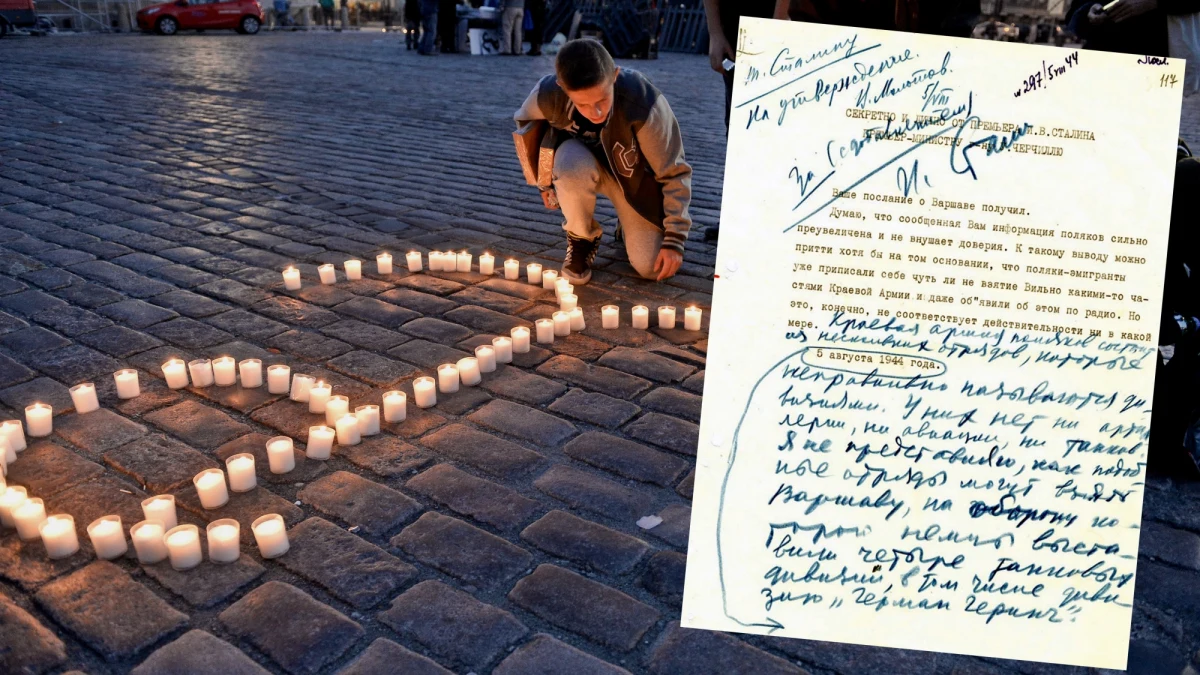 т. Сталину
На утверждение.
В. Молотов.
5/VIII
117
СЕКРЕТНО И ЛИЧНО ОТ ПРЕМЬЕРА И.В.СТАЛИНА
ПРЕМЬЕР-МИНИСТРУ ЧЕРЧИЛЛЮ
За
И. Сталин
Ваше послание о Варшаве получил.
Думаю, что сообщенная Вам информация поляков сильно
преувеличена и не внушает доверия. К такому выводу можно
притти хотя бы на том основании, что поляки-эмигранты
уже приписали себе чуть ли не взятие Вильно какими-то ча-
стями Краевой Армии и даже об"явили об этом по радио. Но
это, конечно, не соответствует действительности ни в какой
мере. Краевая армия поляков состоит
из нескольких отрядов, которые
5 августа 1944 года.
неправильно называются ди-
визиями. У них нет ни арти-
лерии, ни авиации, ни танков.
Я не представляю, как подоб-
ные отряды могут взять
Варшаву, на оборону ко-
торой немцы выста-
вили четыре танковых
дивизии, в том числе диви-
зию „Герман Геринг".